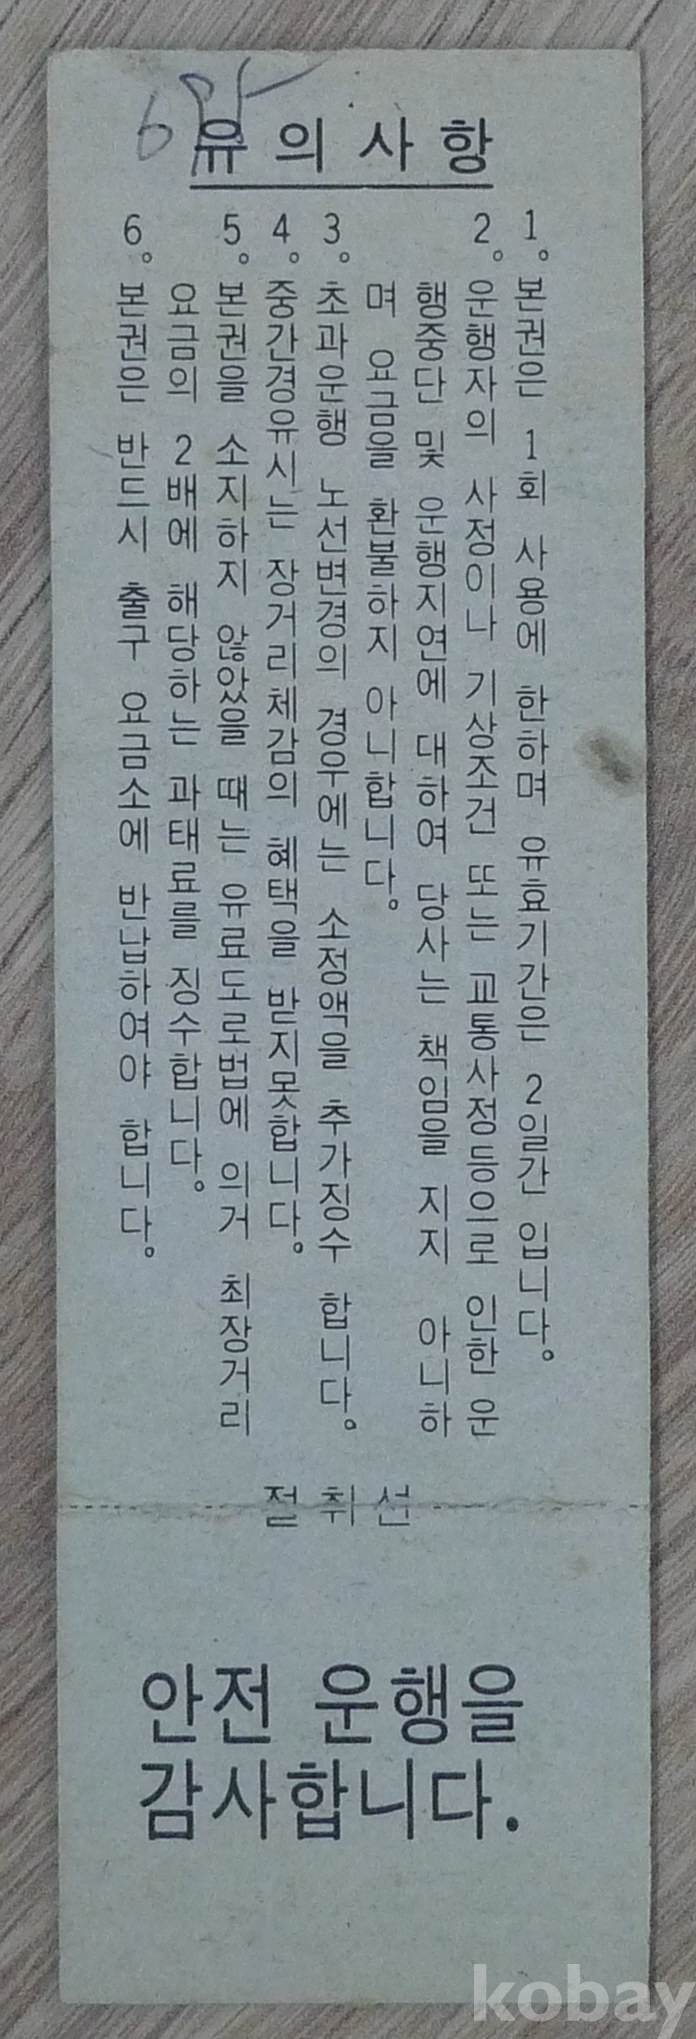 유의사항
1. 본권은 1회 사용에 한하며 유효기간은 2일간 입니다.
2. 운행자의 사정이나 기상조건 또는 교통사정등으로 인한 운
행중단 및 운행지연에 대하여 당사는 책임을 지지 아니하
며 요금을 환불하지 아니합니다.
3. 초과운행 노선변경의 경우에는 소정액을 추가징수 합니다.
4. 중간경유시는 장거리체감의 혜택을 받지못합니다.
5. 본권을 소지하지 않았을 때는 유료도로법에 의거 최장거리
요금의 2배에 해당하는 과태료를 징수합니다.
6. 본권은 반드시 출구 요금소에 반납하여야 합니다.
절취선
안전 운행을
감사합니다.
kobay